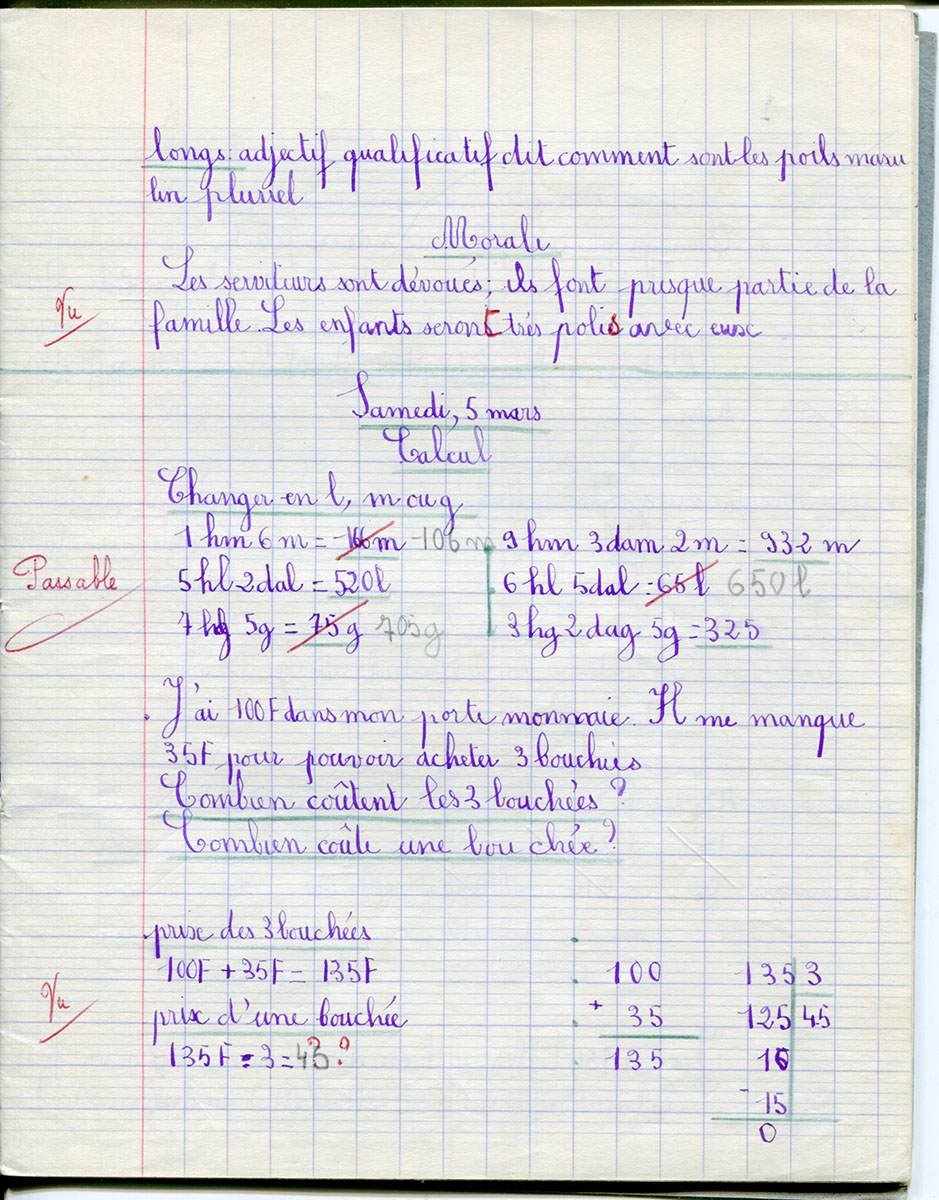 longs: adjectif qualificatif dit comment sont les poils mascu
lin pluriel
Morale
Les serviteurs sont dévoués; ils font presque partie de la
Vu
famille. Les enfants seront très polis avec eux
Samedi, 5 mars
Calcul
Changer en l, m ou g
1 hm 6 m = 166 m 106 m 9 hm 3 dam 2 m = 932 m
Passable
5 hl 2 dal = 520 l 6 hl 5 dal = 65 l 650 l
7 hg 5 g = 75 g 705 g 3 hg 2 dag 5 g = 325
J'ai 100F dans mon porte monnaie. Il me manque
35F pour pouvoir acheter 3 bouchées
Combien coûtent les 3 bouchées ?
Combien coûte une bouchée ?
prix des 3 bouchées
100F + 35F = 135F 100 135 3
Vu
prix d'une bouchée + 35 125 45
135F : 3 = 45 ? 135 15
- 15
0